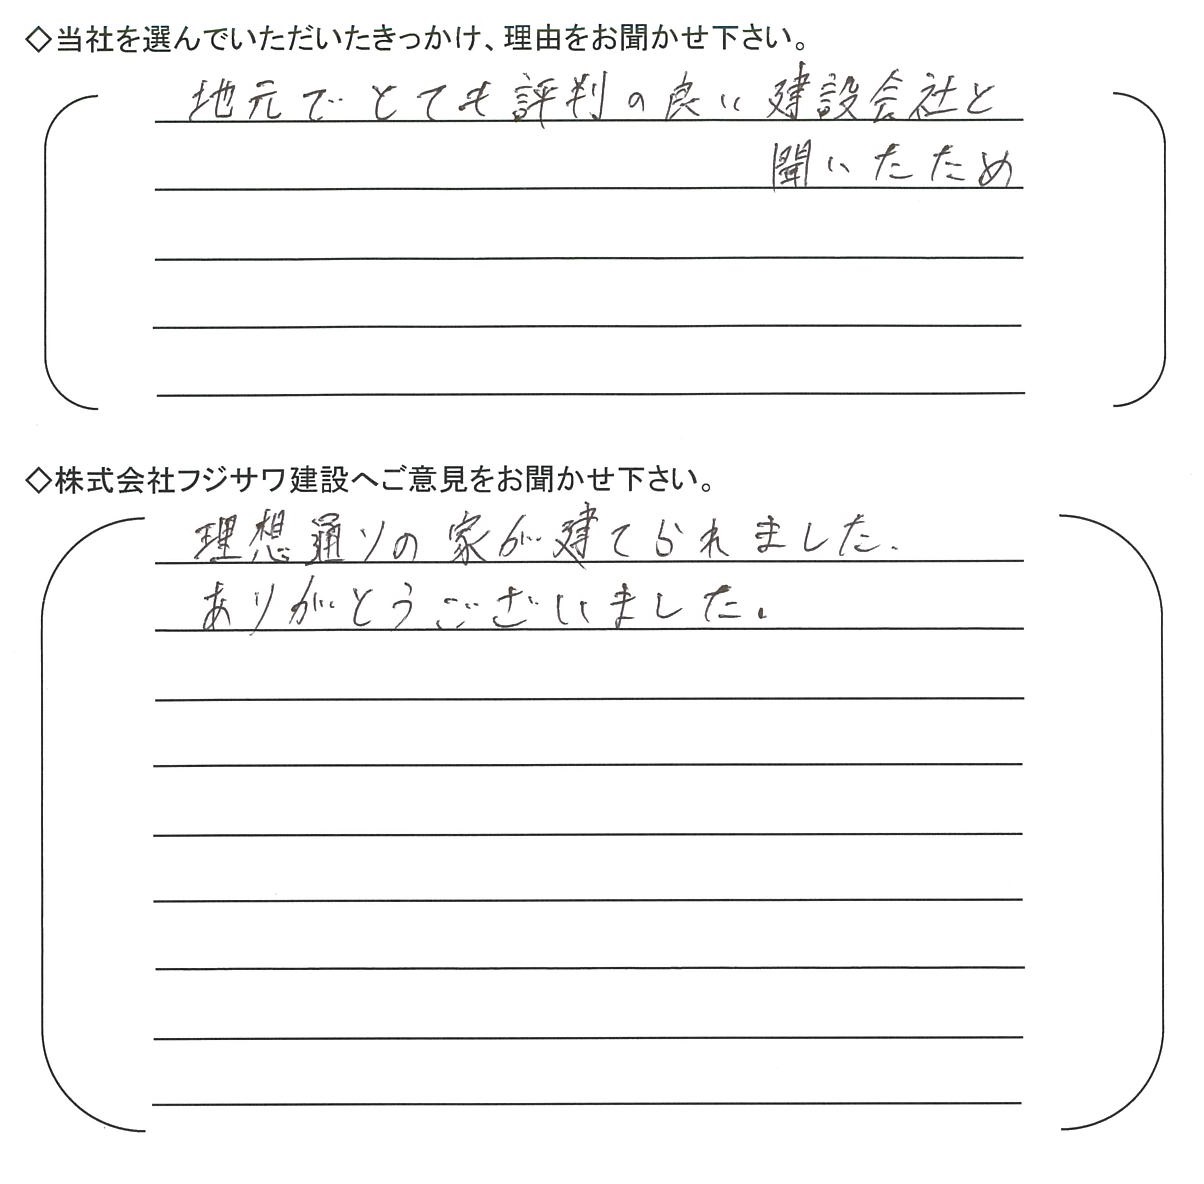 ◇当社を選んでいただいたきっかけ、理由をお聞かせ下さい。
地元でとても評判の良い建設会社と
聞いたため
◇株式会社フジサワ建設へご意見をお聞かせ下さい。
理想通りの家が建てられました.
ありがとうございました。